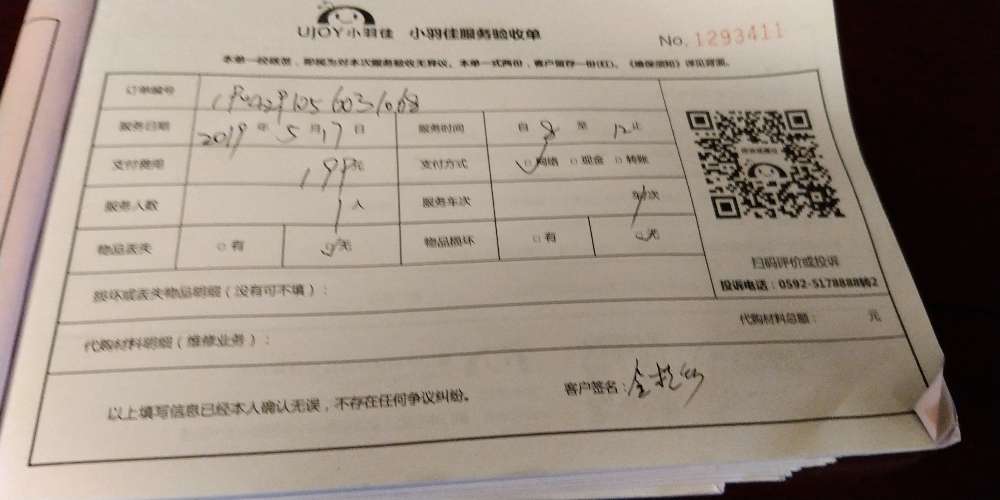 UJOY小羽佳 小羽佳服务验收单
No. 1293411
本单一经核签，即视为对本次服务验收无异议。本单一式两份，客户留存一份(红)。《维保须知》详见背面。
订单编号
服务日期 2019 年 5 月 17 日 服务时间 自 8 至 12 止
支付费用 199 元 支付方式 □网络 □现金 □转账
服务人数 1 人 服务车次 1 车次
物品丢失 □有 □无 物品损坏 □有 □无
扫码评价或投诉
投诉电话：0592-5178888转2
损坏或丢失物品明细（没有可不填）：
代购材料明细（维修业务）： 代购材料总额： 元
以上填写信息已经本人确认无误，不存在任何争议纠纷。 客户签名：